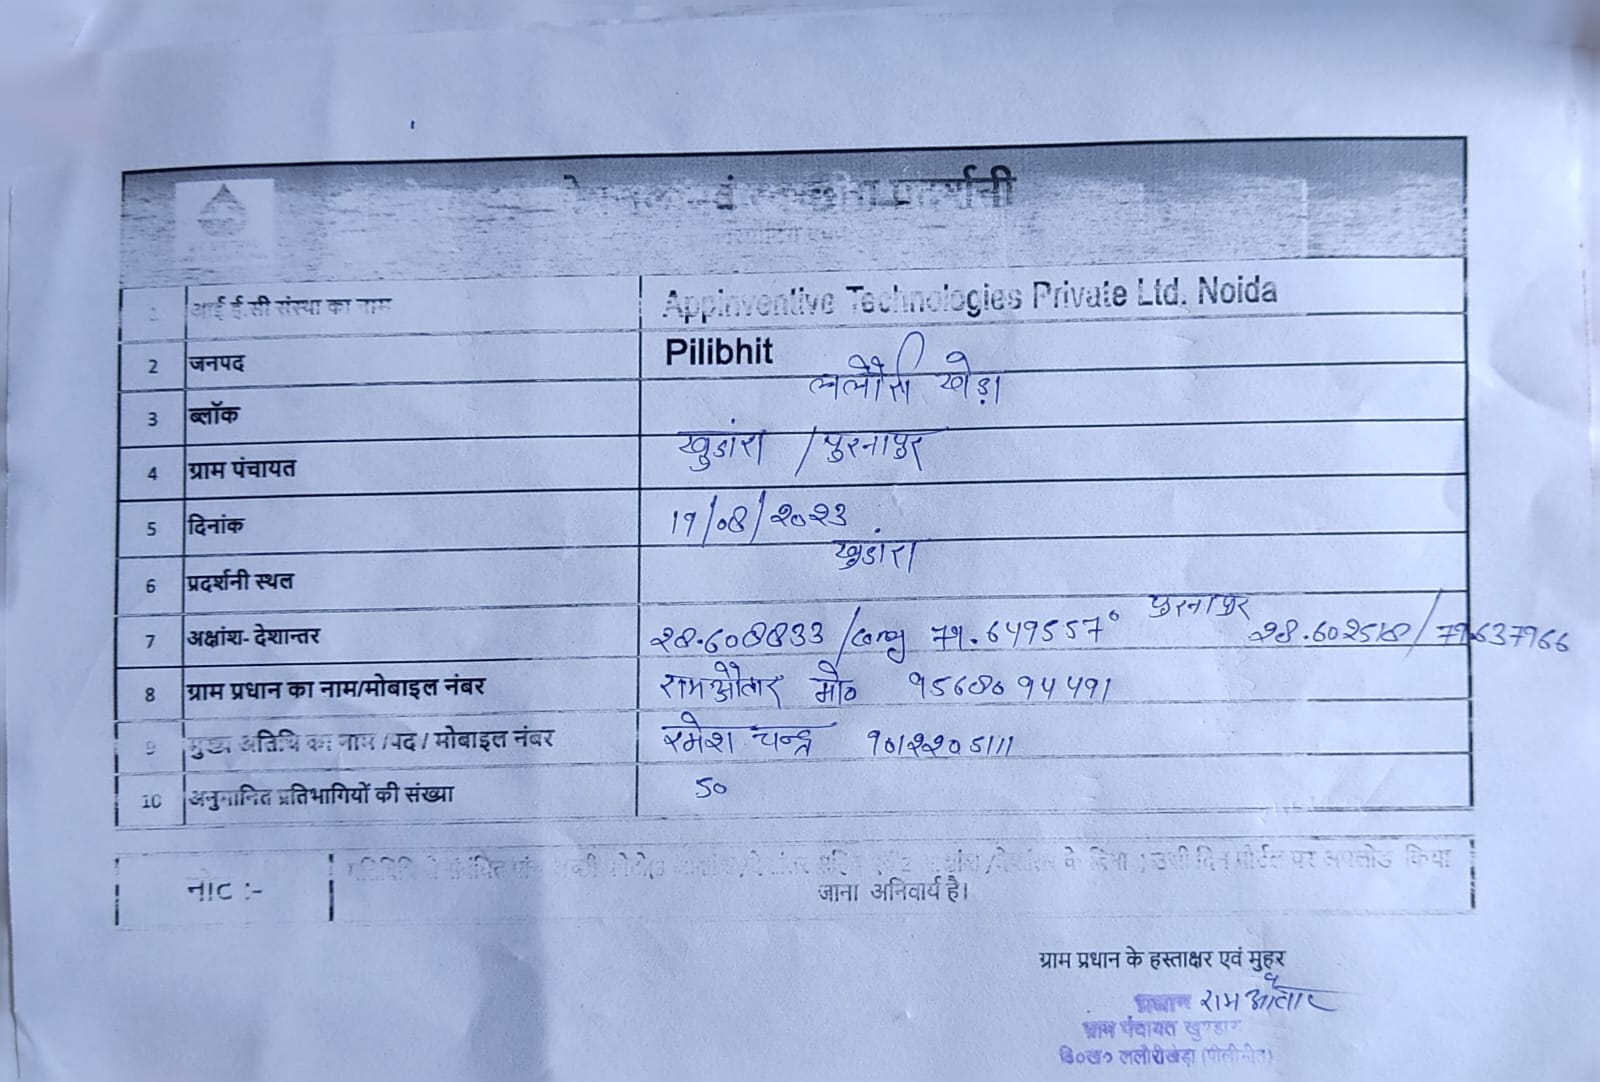 प्रदर्शनी
1 आई.ई.सी संस्था का नाम Appinventive Technologies Private Ltd. Noida
2 जनपद Pilibhit
3 ब्लॉक ललौरी खेड़ा
4 ग्राम पंचायत खुडांरा / पुरनापुर
5 दिनांक 19/08/2023
6 प्रदर्शनी स्थल खुडांरा
7 अक्षांश- देशान्तर 28.608833 / long 79.649557° पुरनापुर 28.602518 / 79.637966
8 ग्राम प्रधान का नाम/मोबाइल नंबर रामऔतार मो०
9 मुख्य अतिथि का नाम /पद / मोबाइल नंबर रमेश चन्द्र
10 अनुमानित प्रतिभागियों की संख्या 50
नोट :- उसी दिन पोर्टल पर अपलोड किया
जाना अनिवार्य है।
ग्राम प्रधान के हस्ताक्षर एवं मुहर
प्रधान रामऔतार
ग्राम पंचायत
वि०ख० ललौरीखेड़ा (पीलीभीत)